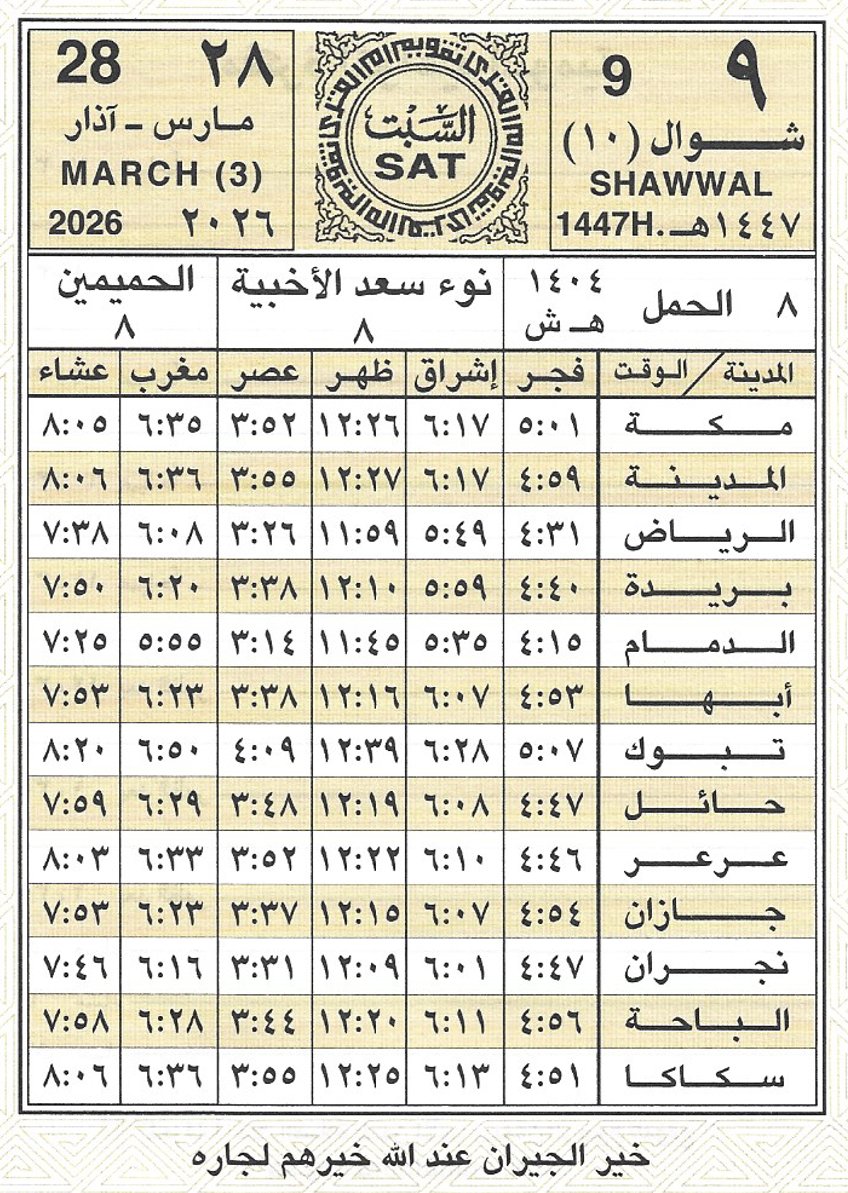 ٩ 9
شوال (١٠)
SHAWWAL
١٤٤٧هـ. 1447H
السَّبْت
SAT
٢٨ 28
مارس - آذار
MARCH (3)
٢٠٢٦ 2026
٨ الحمل ١٤٠٤ هـ ش
نوء سعد الأخبية ٨
الحميمين ٨
المدينة / الوقت فجر إشراق ظهر عصر مغرب عشاء
مكة ٥:٠١ ٦:١٧ ١٢:٢٦ ٣:٥٢ ٦:٣٥ ٨:٠٥
المدينة ٤:٥٩ ٦:١٧ ١٢:٢٧ ٣:٥٥ ٦:٣٦ ٨:٠٦
الرياض ٤:٣١ ٥:٤٩ ١١:٥٩ ٣:٢٦ ٦:٠٨ ٧:٣٨
بريدة ٤:٤٠ ٥:٥٩ ١٢:١٠ ٣:٣٨ ٦:٢٠ ٧:٥٠
الدمام ٤:١٥ ٥:٣٥ ١١:٤٥ ٣:١٤ ٥:٥٥ ٧:٢٥
أبها ٤:٥٣ ٦:٠٧ ١٢:١٦ ٣:٣٨ ٦:٢٣ ٧:٥٣
تبوك ٥:٠٧ ٦:٢٨ ١٢:٣٩ ٤:٠٩ ٦:٥٠ ٨:٢٠
حائل ٤:٤٧ ٦:٠٨ ١٢:١٩ ٣:٤٨ ٦:٢٩ ٧:٥٩
عرعر ٤:٤٦ ٦:١٠ ١٢:٢٢ ٣:٥٢ ٦:٣٣ ٨:٠٣
جازان ٤:٥٤ ٦:٠٧ ١٢:١٥ ٣:٣٧ ٦:٢٣ ٧:٥٣
نجران ٤:٤٧ ٦:٠١ ١٢:٠٩ ٣:٣١ ٦:١٦ ٧:٤٦
الباحة ٤:٥٦ ٦:١١ ١٢:٢٠ ٣:٤٤ ٦:٢٨ ٧:٥٨
سكاكا ٤:٥١ ٦:١٣ ١٢:٢٥ ٣:٥٥ ٦:٣٦ ٨:٠٦
خير الجيران عند الله خيرهم لجاره